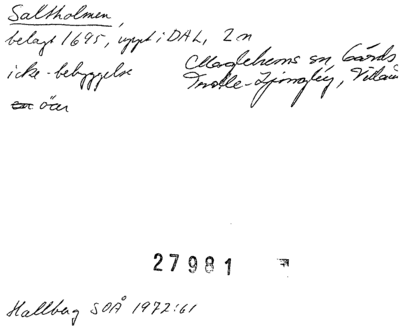 Saltholmen,
belagt 1695, uppt i DAL, 2 n
icke-bebyggelse Maglehems sn, Gärds
Trolle-Ljungby, Villan
en öar
27981
Hallberg SOÅ 1972:61